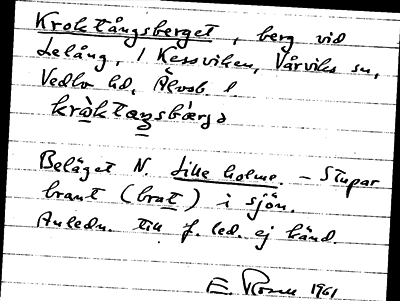 Kroktångsberget, berg vid
Lelång, i Kessviken, Vårviks sn,
Vedbo hd, Älvsb. l.
kròktaŋsbærjə
Beläget N. Lille holme. – Stupar
brant (brat) i sjön.
Anledn. till f. led. ej känd.
E. 1961